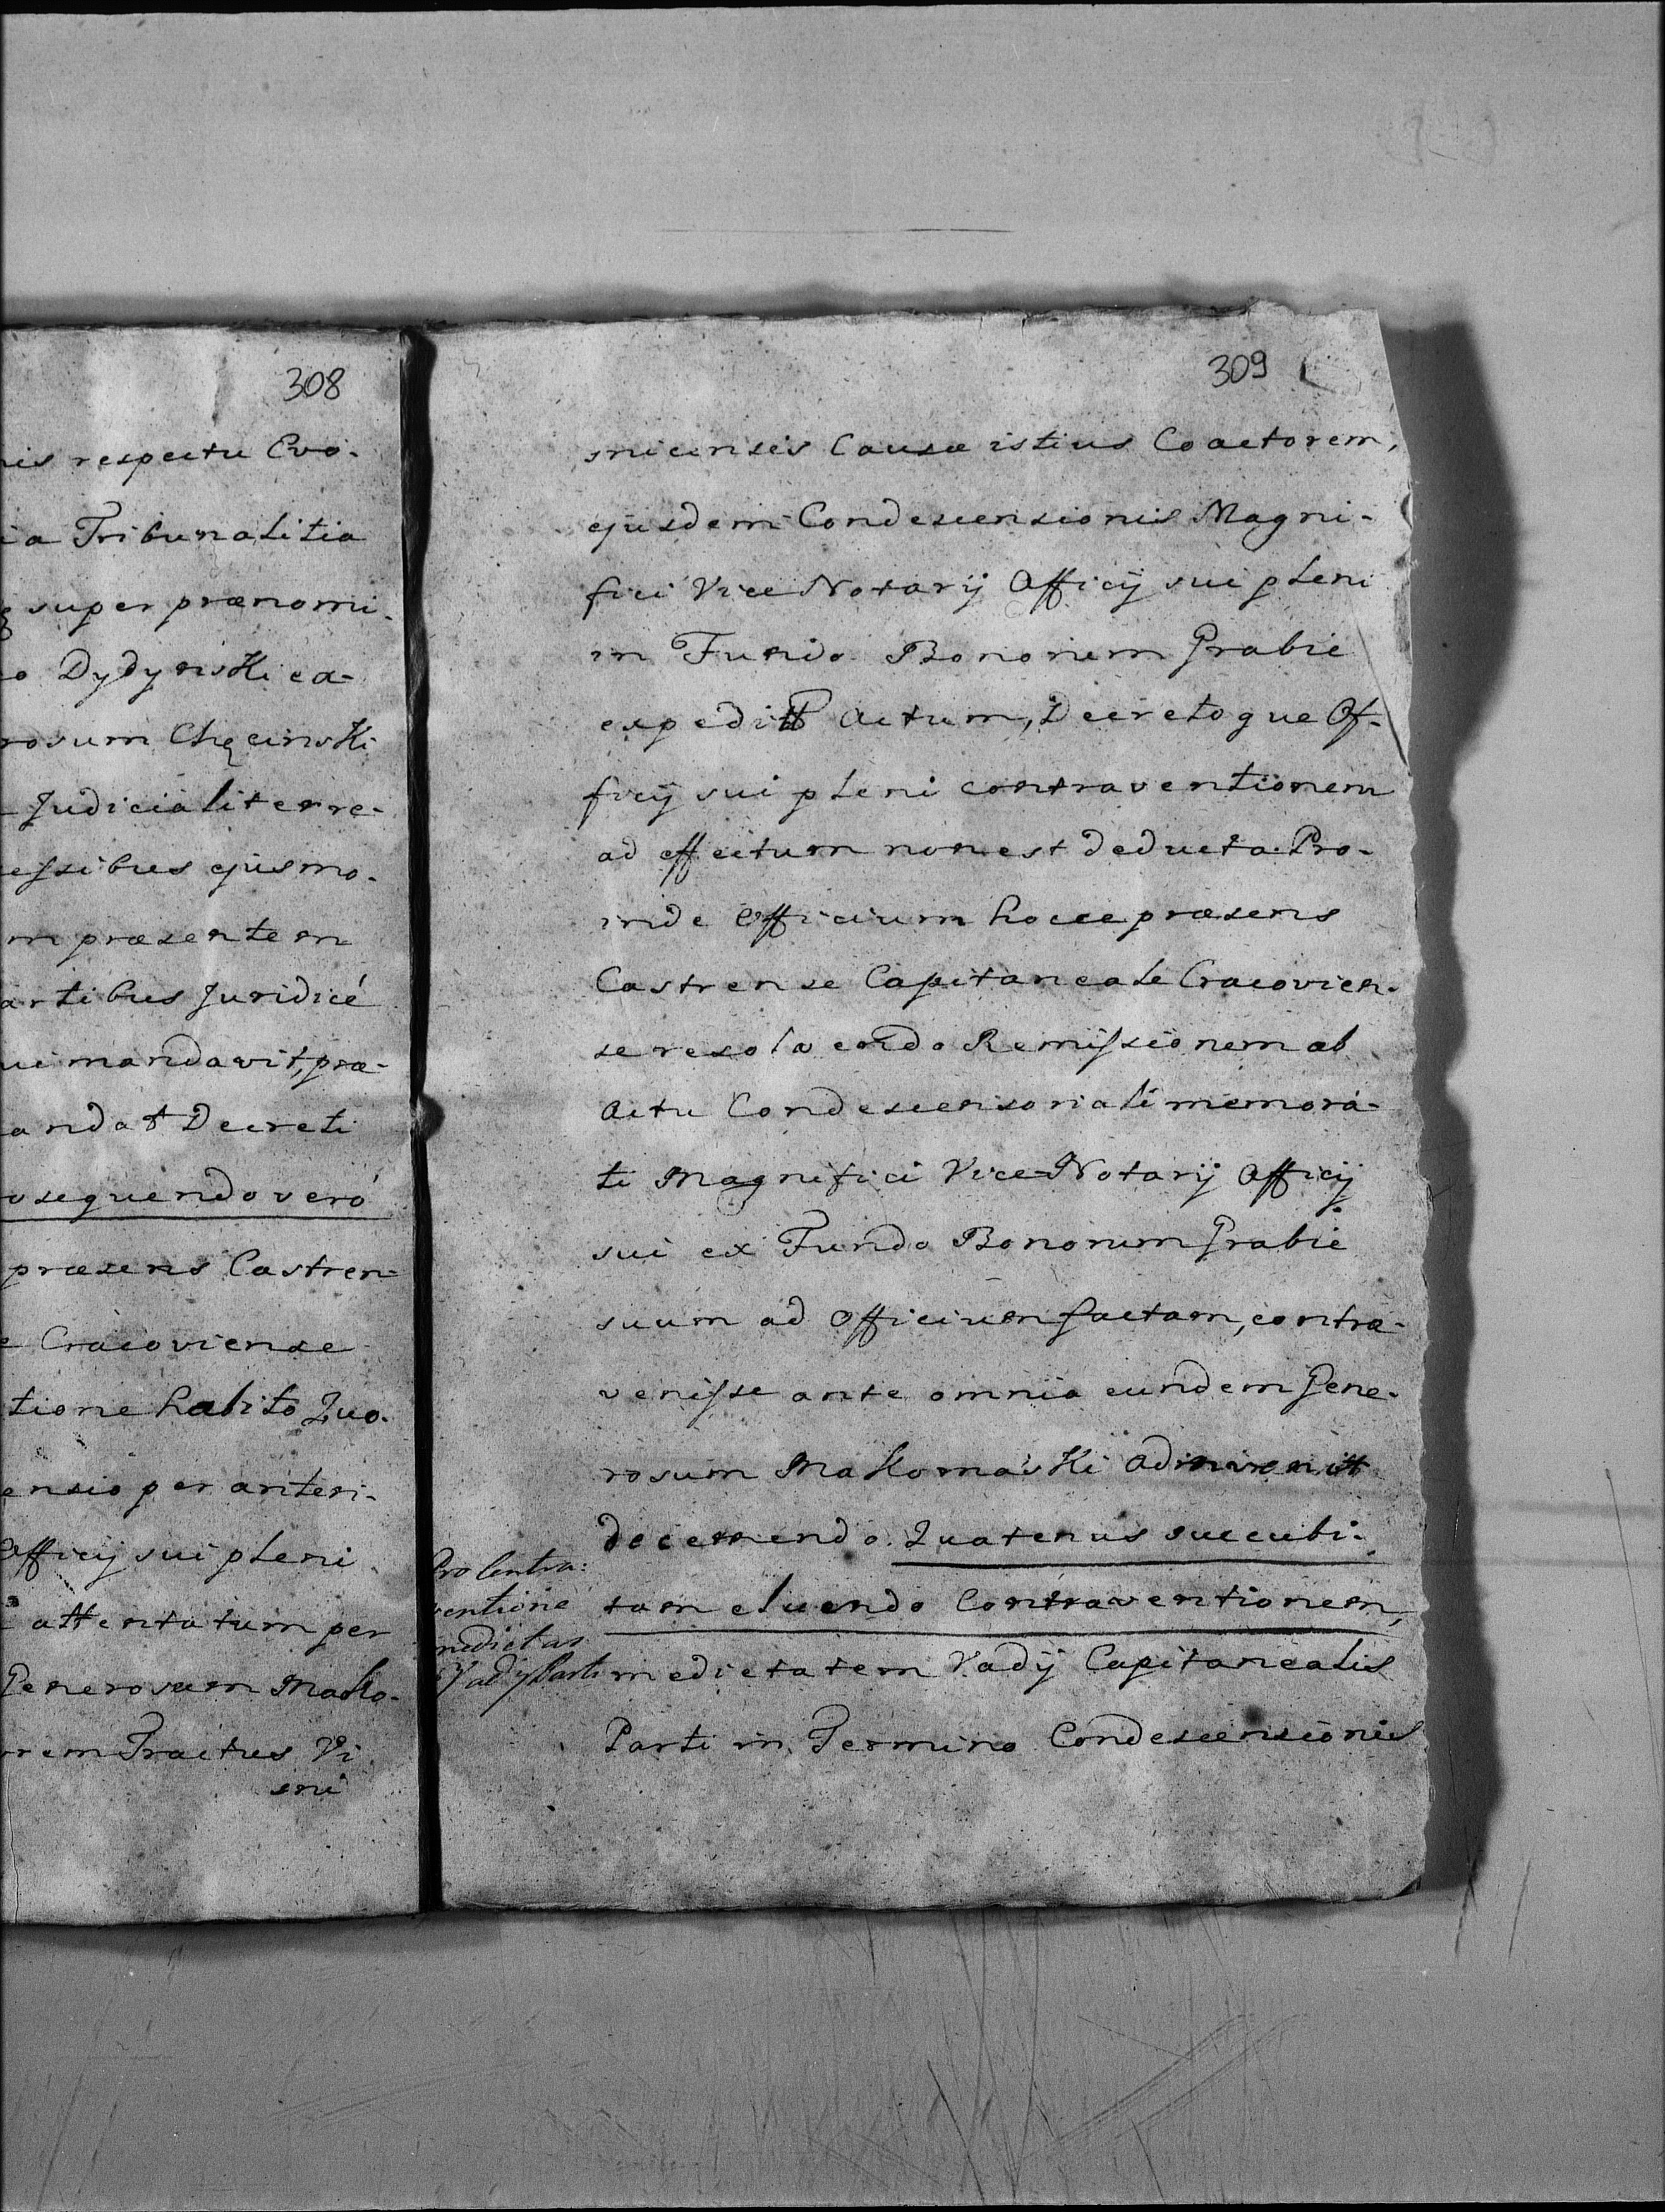 308
nis respectu Evo-
ia Tribunalitia
super prænomi-
o Dydyński ea-
rosum Chęcinski
Judicialiter re-
essibus ejusmo-
m præsentem
artibus Juridicé
ui mandavit, præ-
andat Decreti
osequendo veró
præsens Castren-
e Cracoviense
tione habito Quo-
ensio per anteri-
Officij sui pleni
attentatum per
Generosum Mako-
rem Tractus Vi
sni
309
snicensis Causæ istius Coactorem,
ejusdem Condescensionis Magni-
fici Vice Notarij Officij sui pleni
in Fundo Bonorum Grabie
expedit Actum, Decretoque Of-
ficij sui pleni contraventionem
ad effectum non est deducta. Pro-
inde Officium hocce præsens
Castrense Capitaneale Cracovien-
se resolvendo Remissionem ab
Actu Condescensoriali memora-
ti Magnifici Vice-Notarij Officij
sui ex Fundo Bonorum Grabie
suum ad Officium factam, contra-
venisse ante omnia eundem Gene-
rosum Makomaski
decernendo. Quatenus succubi-
tam eluendo Contraventionem,
medietatem Vadij Capitanealis
Parti in Termino Condescensionis
Pro Contra:
ventione
medietas
Vadij Parti